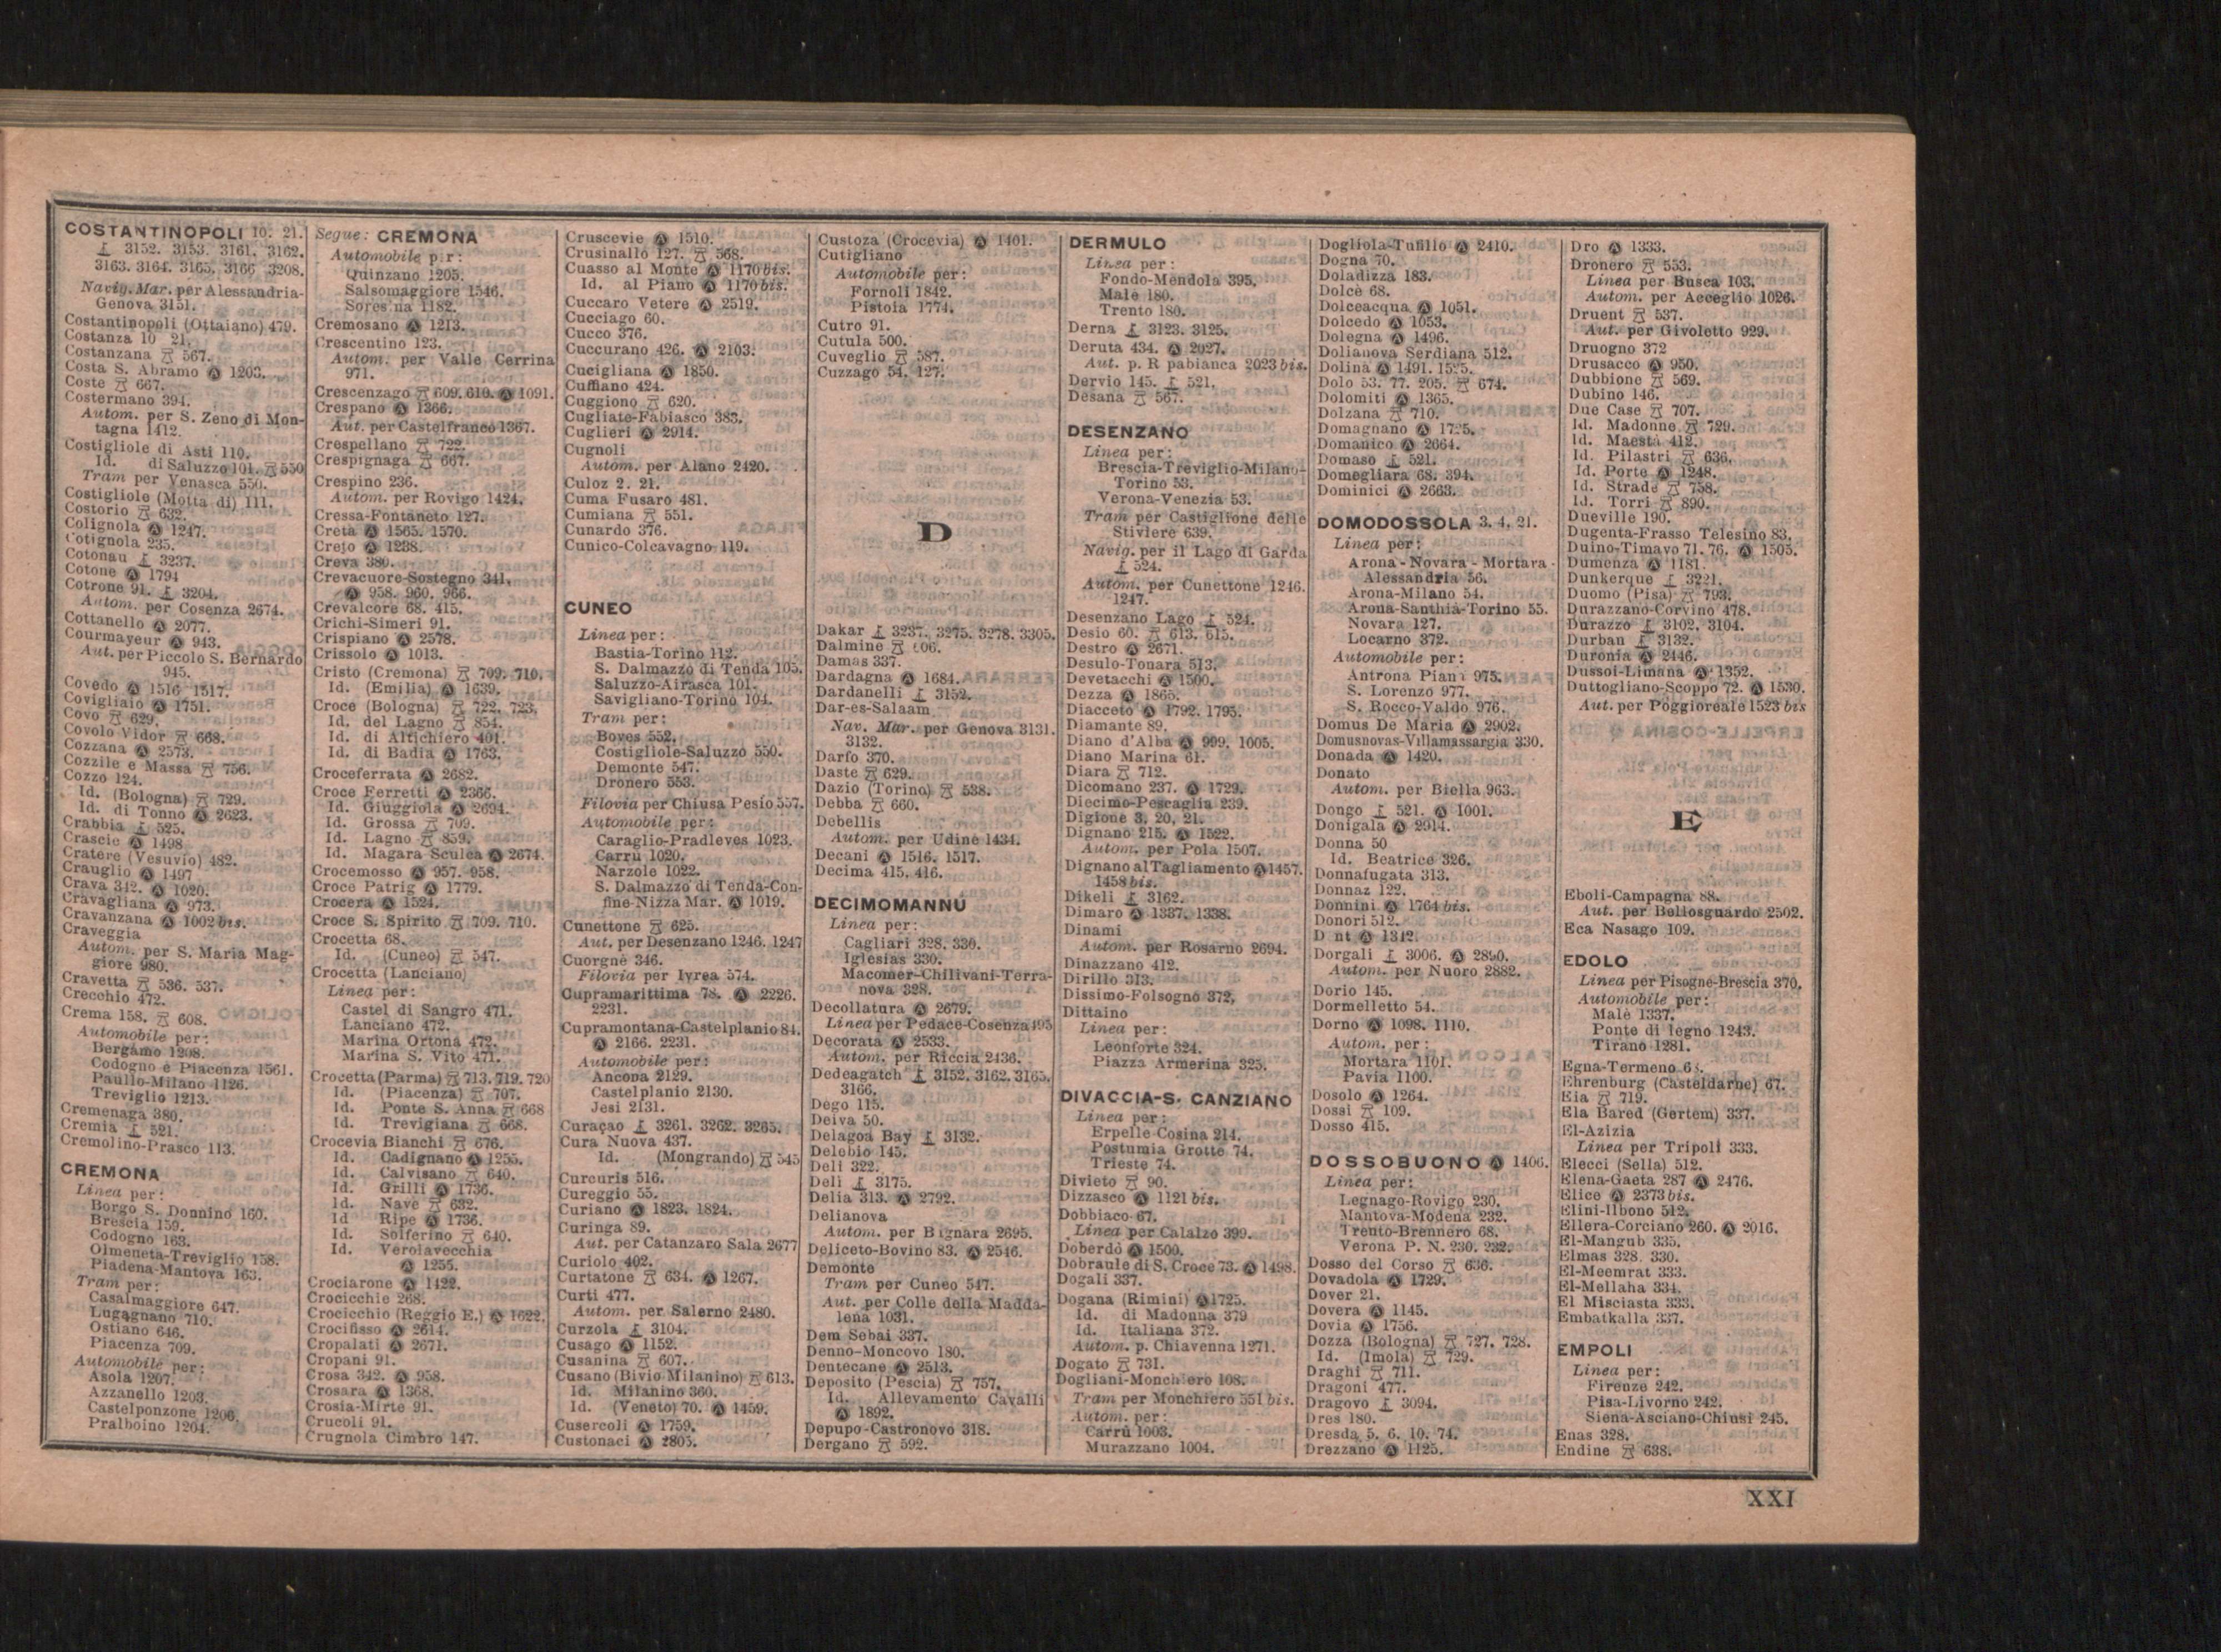 COSTANTINOPOLI 10. 21.
3152. 3153. 3161. 3162.
3163. 3164. 3165. 3166 3208.
Navig. Mar. per Alessandria-
Genova 3151.
Costantinopoli (Ottaiano) 479.
Costanza 10 21.
Costanzana 567.
Costa S. Abramo Ⓐ 1203.
Coste 667.
Costermano 394.
Autom. per S. Zeno di Mon-
tagna 1412.
Costigliole di Asti 110.
Id. di Saluzzo 101. 550
Tram per Venasca 550.
Costigliole (Motta di) 111.
Costorio 632.
Cotignola Ⓐ 1247.
Cotignola 235.
Cotonau 3237.
Cotone Ⓐ 1794
Cotrone 91. 3204.
Autom. per Cosenza 2674.
Cottanello Ⓐ 2077.
Courmayeur Ⓐ 943.
Aut. per Piccolo S. Bernardo
945.
Covedo Ⓐ 1516 1517.
Covigliaio Ⓐ 1751.
Covo 629.
Covolo Vidor 668.
Cozzana Ⓐ 2573.
Cozzile e Massa 756.
Cozzo 124.
Id. (Bologna) 729.
Id. di Tonno Ⓐ 2623.
Crabbia 525.
Crascie Ⓐ 1498
Cratere (Vesuvio) 482.
Crauglio Ⓐ 1497
Crava 342. Ⓐ 1020.
Cravagliana Ⓐ 973.
Cravanzana Ⓐ 1002 bis.
Craveggia
Autom. per S. Maria Mag-
giore 980.
Cravetta 536. 537.
Crecchio 472.
Crema 158. 608.
Automobile per:
Bergamo 1208.
Codogno e Piacenza 1561.
Paullo-Milano 1126.
Treviglio 1213.
Cremenaga 380.
Cremia 521.
Cremolino-Prasco 113.
CREMONA
Linea per:
Borgo S. Donnino 160.
Brescia 159.
Codogno 163.
Olmeneta-Treviglio 158.
Piadena-Mantova 163.
Tram per:
Casalmaggiore 647.
Lugagnano 710.
Ostiano 646.
Piacenza 709.
Automobile per:
Asola 1207.
Azzanello 1203.
Castelponzone 1206.
Pralboino 1204.
Segue: CREMONA
Automobile per:
Quinzano 1205.
Salsomaggiore 1546.
Sores na 1182.
Cremosano Ⓐ 1213.
Crescentino 123.
Autom. per Valle Cerrina
971.
Crescenzago 609. 610. Ⓐ 1091.
Crespano Ⓐ 1366.
Aut. per Castelfranco 1367.
Crespellano 722.
Crespignaga 667.
Crespino 236.
Autom. per Rovigo 1424.
Cressa-Fontaneto 127.
Creta Ⓐ 1565. 1570.
Creto Ⓐ 1238.
Creva 380.
Crevacuore-Sostegno 341.
Ⓐ 958. 960. 966.
Crevalcore 68. 415.
Crichi-Simeri 91.
Crispiano Ⓐ 2578.
Crissolo Ⓐ 1013.
Cristo (Cremona) 709. 710.
Id. (Emilia) Ⓐ 1639.
Croce (Bologna) 722. 723.
Id. del Lagno 854.
Id. di Altichiero 401.
Id. di Badia Ⓐ 1763.
Croceferrata Ⓐ 2682.
Croce Ferretti Ⓐ 2366.
Id. Giuggiola Ⓐ 2694.
Id. Grossa 709.
Id. Lagno 859.
Id. Magara Sculca Ⓐ 2674.
Crocemosso Ⓐ 957. 958.
Croce Patrig Ⓐ 1779.
Crocera Ⓐ 1524.
Croce S. Spirito 709. 710.
Crocetta 68.
Id. (Cuneo) 547.
Crocetta (Lanciano)
Linea per:
Castel di Sangro 471.
Lanciano 472.
Marina Ortona 472.
Marina S. Vito 471.
Crocetta (Parma) 713. 719. 720
Id. (Piacenza) 707.
Id. Ponte S. Anna 668
Id. Trevigiana 668.
Crocevia Bianchi 676.
Id. Cadignano Ⓐ 1255.
Id. Calvisano 640.
Id. Grilli Ⓐ 1736.
Id. Nave 632.
Id Ripe Ⓐ 1736.
Id. Solferino 640.
Id. Verolavecchia
Ⓐ 1255.
Crociarone Ⓐ 1422.
Crocicchie 268.
Crocicchio (Reggio E.) Ⓐ 1622.
Crocifisso Ⓐ 2614.
Cropalati Ⓐ 2671.
Cropani 91.
Crosa 342. Ⓐ 958.
Crosara Ⓐ 1368.
Crosia-Mirte 91.
Crucoli 91.
Crugnola Cimbro 147.
Cruscevie Ⓐ 1510.
Crusinallo 127. 568.
Cuasso al Monte Ⓐ 1170 bis.
Id. al Piano Ⓐ 1170 bis.
Cuccaro Vetere Ⓐ 2519.
Cucciago 60.
Cucco 376.
Cuccurano 426. Ⓐ 2103.
Cucigliana Ⓐ 1850.
Cuffiano 424.
Cuggiono 620.
Cugliate-Fabiasco 383.
Cuglieri Ⓐ 2914.
Cugnoli
Autom. per Alano 2420.
Culoz 2. 21.
Cuma Fusaro 481.
Cumiana 551.
Cunardo 376.
Cunico-Colcavagno 119.
CUNEO
Linea per:
Bastia-Torino 112.
S. Dalmazzo di Tenda 105.
Saluzzo-Airasca 101.
Savigliano-Torino 104.
Tram per:
Boves 552.
Costigliole-Saluzzo 550.
Demonte 547.
Dronero 553.
Filovia per Chiusa Pesio 557.
Automobile per:
Caraglio-Pradleves 1023.
Carrù 1020.
Narzole 1022.
S. Dalmazzo di Tenda-Con-
fine-Nizza Mar. Ⓐ 1019.
Cunettone 625.
Aut. per Desenzano 1246. 1247
Cuorgnè 346.
Filovia per Ivrea 574.
Cupramarittima 78. Ⓐ 2226.
2231.
Cupramontana-Castelplanio 84.
Ⓐ 2166. 2231.
Automobile per:
Ancona 2129.
Castelplanio 2130.
Jesi 2131.
Curaçao 3261. 3262. 3265.
Cura Nuova 437.
Id. (Mongrando) 545
Curcuris 516.
Cureggio 55.
Curiano Ⓐ 1823. 1824.
Curinga 89.
Aut. per Catanzaro Sala 2677
Curiolo 402.
Curtatone 634. Ⓐ 1267.
Curti 477.
Autom. per Salerno 2480.
Curzola 3104.
Cusago Ⓐ 1152.
Cusanina 607.
Cusano (Bivio Milanino) 613.
Id. Milanino 360.
Id. (Veneto) 70. Ⓐ 1459.
Cusercoli Ⓐ 1759.
Custonaci Ⓐ 2805.
Custoza (Crocevia) Ⓐ 1401.
Cutigliano
Automobile per:
Fornoli 1842.
Pistoia 1774.
Cutro 91.
Cutula 500.
Cuveglio 587.
Cuzzago 54. 127.
D
Dakar 3237. 3275. 3278. 3305.
Dalmine 606.
Damas 337.
Dardagna Ⓐ 1684.
Dardanelli 3152.
Dar-es-Salaam
Nav. Mar. per Genova 3131.
3132.
Darfo 370.
Daste 629.
Dazio (Torino) 538.
Debba 660.
Debellis
Autom. per Udine 1434.
Decani Ⓐ 1516. 1517.
Decima 415. 416.
DECIMOMANNU
Linea per:
Cagliari 328. 330.
Iglesias 330.
Macomer-Chilivani-Terra-
nova 328.
Decollatura Ⓐ 2679.
Linea per Pedace-Cosenza 495
Decorata Ⓐ 2533.
Autom. per Riccia 2436.
Dedeagatch 3152. 3162. 3165.
3166.
Dego 115.
Deiva 50.
Delagoa Bay 3132.
Delebio 145.
Deli 322.
Deli 3175.
Delia 313. Ⓐ 2792.
Delianova
Autom. per Bagnara 2695.
Deliceto-Bovino 83. Ⓐ 2546.
Demonte
Tram per Cuneo 547.
Aut. per Colle della Madda-
lena 1031.
Dem Sebai 337.
Denno-Moncovo 180.
Dentecane Ⓐ 2513.
Deposito (Pescia) 757.
Id. Allevamento Cavalli
Ⓐ 1892.
Depupo-Castronovo 318.
Dergano 592.
DERMULO
Linea per:
Fondo-Mendola 395.
Malè 180.
Trento 180.
Derna 3123. 3125.
Deruta 434. Ⓐ 2027.
Aut. p. R pabianca 2023 bis.
Dervio 145. 521.
Desana 567.
DESENZANO
Linea per:
Brescia-Treviglio-Milano-
Torino 53.
Verona-Venezia 53.
Tram per Castiglione delle
Stiviere 639.
Navig. per il Lago di Garda
524.
Autom. per Cunettone 1246.
1247.
Desenzano Lago 524.
Desio 60. 613. 615.
Destro Ⓐ 2671.
Desulo-Tonara 513.
Devetacchi Ⓐ 1500.
Dezza Ⓐ 1865.
Diacceto Ⓐ 1792. 1795.
Diamante 89.
Diano d'Alba Ⓐ 999. 1005.
Diano Marina 61.
Diara 712.
Dicomano 237. Ⓐ 1729.
Diecimo-Pescaglia 239.
Digione 3, 20, 21.
Dignano 215. Ⓐ 1522.
Autom. per Pola 1507.
Dignano al Tagliamento Ⓐ 1457.
1458 bis.
Dikeli 3162.
Dimaro Ⓐ 1337. 1338.
Dinami
Autom. per Rosarno 2694.
Dinazzano 412.
Dirillo 313.
Dissimo-Folsogno 372,
Dittaino
Linea per:
Leonforte 324.
Piazza Armerina 325.
DIVACCIA-S. CANZIANO
Linea per:
Erpelle-Cosina 214.
Postumia Grotte 74.
Trieste 74.
Divieto 90.
Dizzasco Ⓐ 1121 bis.
Dobbiaco 67.
Linea per Calalzo 399.
Doberdò Ⓐ 1500.
Dobraule di S. Croce 73. Ⓐ 1498.
Dogali 337.
Dogana (Rimini) Ⓐ 1725.
Id. di Madonna 379
Id. Italiana 372.
Autom. p. Chiavenna 1271.
Dogato 731.
Dogliani-Monchiero 108.
Tram per Monchiero 551 bis.
Autom. per:
Carrù 1003.
Murazzano 1004.
Dogliola-Tufillo Ⓐ 2410.
Dogna 70.
Doladizza 183.
Dolcè 68.
Dolceacqua Ⓐ 1051.
Dolcedo Ⓐ 1053.
Dolegna Ⓐ 1496.
Dolianova Serdiana 512.
Dolina Ⓐ 1491. 1525.
Dolo 53. 77. 205. 674.
Dolomiti Ⓐ 1365.
Dolzana 710.
Domagnano Ⓐ 1725.
Domanico Ⓐ 2664.
Domaso 521.
Domegliara 68. 394.
Dominici Ⓐ 2663.
DOMODOSSOLA 3. 4. 21.
Linea per:
Arona - Novara - Mortara -
Alessandria 56.
Arona-Milano 54.
Arona-Santhià-Torino 55.
Novara 127.
Locarno 372.
Automobile per:
Antrona Piana 975.
S. Lorenzo 977.
S. Rocco-Valdo 976.
Domus De Maria Ⓐ 2902.
Domusnovas-Villamassargia 330.
Donada Ⓐ 1420.
Donato
Autom. per Biella 963.
Dongo 521. Ⓐ 1001.
Donigala Ⓐ 2914.
Donna 50
Id. Beatrice 326.
Donnafugata 313.
Donnaz 122.
Donnini Ⓐ 1764 bis.
Donori 512.
D nt Ⓐ 1312.
Dorgali 3006. Ⓐ 2880.
Autom. per Nuoro 2882.
Dorio 145.
Dormelletto 54.
Dorno Ⓐ 1098. 1110.
Autom. per:
Mortara 1101.
Pavia 1100.
Dosolo Ⓐ 1264.
Dossi 109.
Dosso 415.
DOSSOBUONO Ⓐ 1406.
Linea per:
Legnago-Rovigo 230.
Mantova-Modena 232.
Trento-Brennero 68.
Verona P. N. 230. 232.
Dosso del Corso 636.
Dovadola Ⓐ 1729.
Dover 21.
Dovera Ⓐ 1145.
Dovia Ⓐ 1756.
Dozza (Bologna) 727. 728.
Id. (Imola) 729.
Draghi 711.
Dragoni 477.
Dragovo 3094.
Dres 180.
Dresda 5. 6. 10. 74.
Drezzano Ⓐ 1125.
Dro Ⓐ 1333.
Dronero 553.
Linea per Busca 103.
Autom. per Acceglio 1026.
Druent 537.
Aut. per Givoletto 929.
Druogno 372
Drusacco Ⓐ 950.
Dubbione 569.
Dubino 146.
Due Case 707.
Id. Madonne 729.
Id. Maestà 412.
Id. Pilastri 636.
Id. Porte Ⓐ 1248.
Id. Strade 758.
Id. Torri 890.
Dueville 190.
Dugenta-Frasso Telesino 83.
Duino-Timavo 71. 76. Ⓐ 1505.
Dumenza Ⓐ 1181.
Dunkerque 3221.
Duomo (Pisa) 793.
Durazzano-Corvino 478.
Durazzo 3102. 3104.
Durban 3132.
Duronia Ⓐ 2446.
Dussoi-Limana Ⓐ 1352.
Duttogliano-Scoppo 72. Ⓐ 1530.
Aut. per Poggioreale 1523 bis
E
Eboli-Campagna 88.
Aut. per Bellosguardo 2502.
Eca Nasago 109.
EDOLO
Linea per Pisogne-Brescia 370.
Automobile per:
Malè 1337.
Ponte di legno 1243.
Tirano 1281.
Egna-Termeno 68.
Ehrenburg (Casteldarne) 67.
Eia 719.
Ela Bared (Gertem) 337.
El-Azizia
Linea per Tripoli 333.
Elecci (Sella) 512.
Elena-Gaeta 287 Ⓐ 2476.
Elice Ⓐ 2373 bis.
Elini-Ilbono 512.
Ellera-Corciano 260. Ⓐ 2016.
El-Mangub 335.
Elmas 328. 330.
El-Meemrat 333.
El-Mellaha 334.
El Misciasta 333.
Embatkalla 337.
EMPOLI
Linea per:
Firenze 242.
Pisa-Livorno 242.
Siena-Asciano-Chiusi 245.
Enas 328.
Endine 638.
XXI